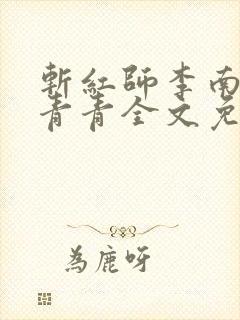 斬紅師李南
青青全文免
為鹿呀